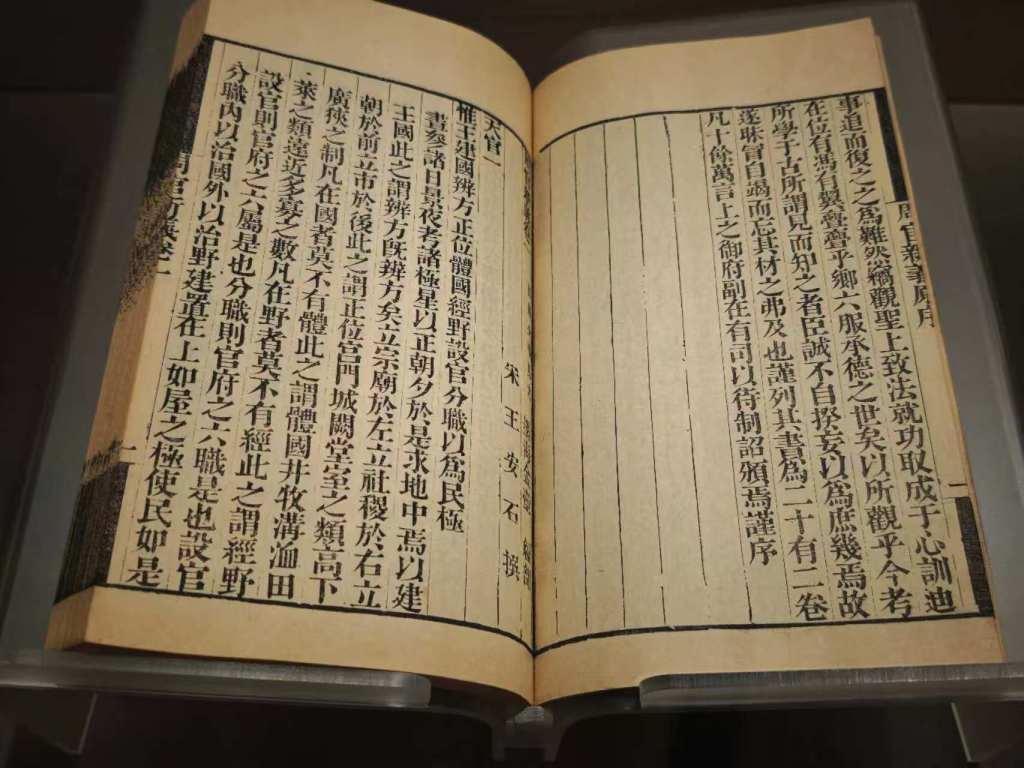 周官新義原序
一
事追而復之之為難然竊觀聖上致法就功取成于心訓迪
在位有馮有翼亹亹乎鄉六服承德之世矣以所觀乎今考
所學于古所謂見而知之者臣誠不自揆妄以為庶幾焉故
遂昧冒自竭而忘其材之弗及也謹列其書為二十有二卷
凡十餘萬言上之御府副在有司以待制詔頒焉謹序
宋王安石撰
天官一
惟王建國辨方正位體國經野設官分職以為民極
晝參諸日景夜考諸極星以正朝夕於是求地中焉以建
王國此之謂辨方既辨方矣立宗廟於左立社稷於右立
朝於前立市於後此之謂正位宮門城闕堂室之類高下
廣狹之制凡在國者莫不有體此之謂體國井牧溝洫田
萊之類遠近多寡之數凡在野者莫不有經此之謂經野
設官則官府之六屬是也分職則官府之六職是也設官
分職內以治國外以治野建置在上如屋之極使民如是
周官新義卷一
一